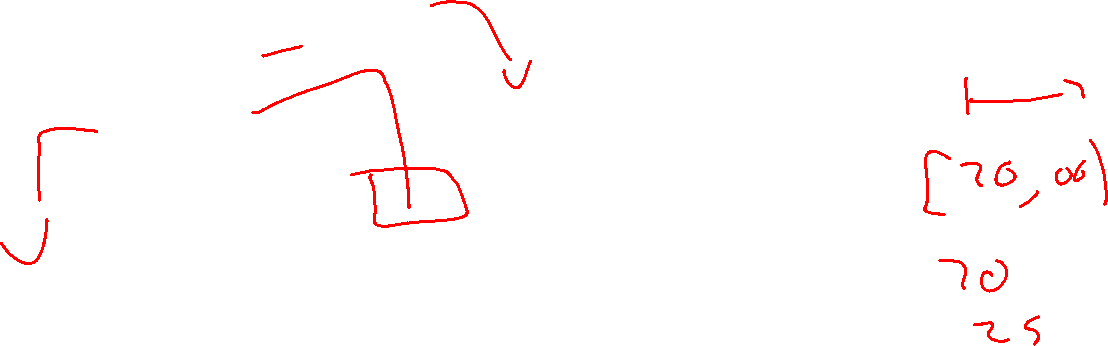 [70, ∞)
70
25